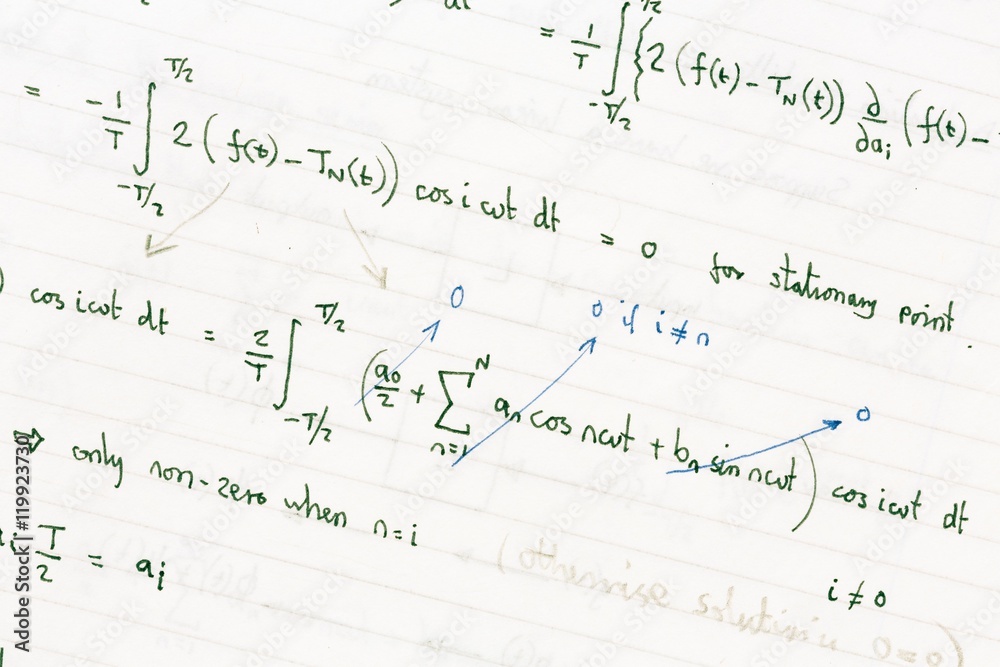 = 1/T ∫_{-T/2}^{T/2} { 2 ( f(t) - T_N(t) ) ∂/∂a_i ( f(t) -
= -1/T ∫_{-T/2}^{T/2} 2 ( f(t) - T_N(t) ) cos iωt dt = 0 for stationary point.
) cos iωt dt = 2/T ∫_{-T/2}^{T/2} ( a_0/2 + ∑_{n=1}^{N} a_n cos nωt + b_n sin nωt ) cos iωt dt
0
0 if i ≠ n
0
i ≠ 0
⇒ only non-zero when n = i
T/2 = a_i
Adobe Stock | #119923730